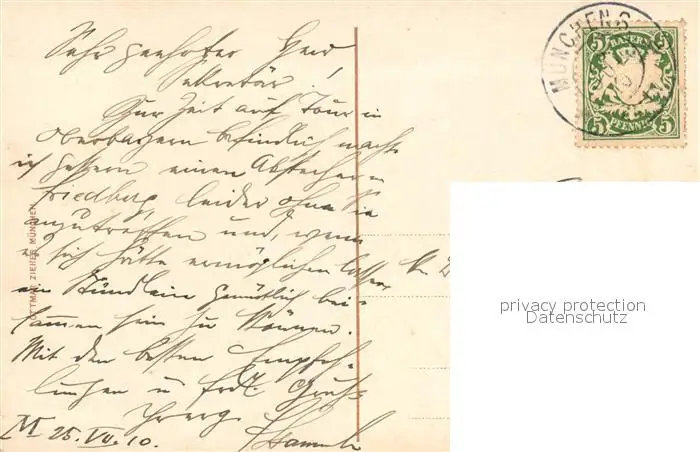 Sehr geehrter Herr
Sekretär!
Zur Zeit auf Tour in
Oberbayern befindlich machte
ich gestern einen Abstecher n.
Friedberg, leider ohne Sie
anzutreffen und, wenn
es sich hätte ermöglichen lassen
ein Stündlein gemütlich bei-
sammen sein zu können.
Mit den besten Empfeh-
lungen u. frdl. Gruss
Ihr erg.
M 25. VII. 10.
OTTMAR ZIEHER, MÜNCHEN
MÜNCHEN
BAYERN
5 5
PFENNIG
5 5
privacy protection
Datenschutz